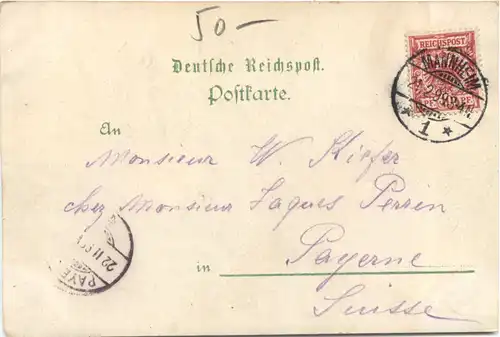 50 -
REICHSPOST
MANNHEIM
* 1 *
Deutsche Reichspost.
Postkarte.
An
Monsieur W. Kiefer
chez Monsieur Jaques Perrin
in Payerne
Suisse
22 II
PAYE